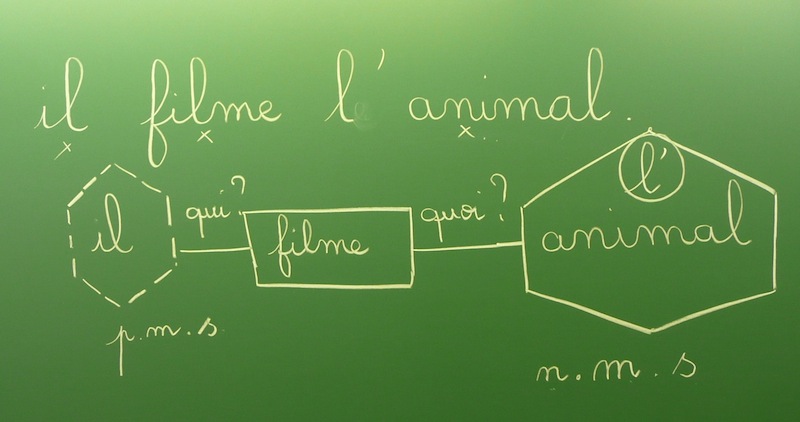 il filme l' animal.
x x x
l'
il qui? filme quoi? animal
p.m.s.
n.m.s